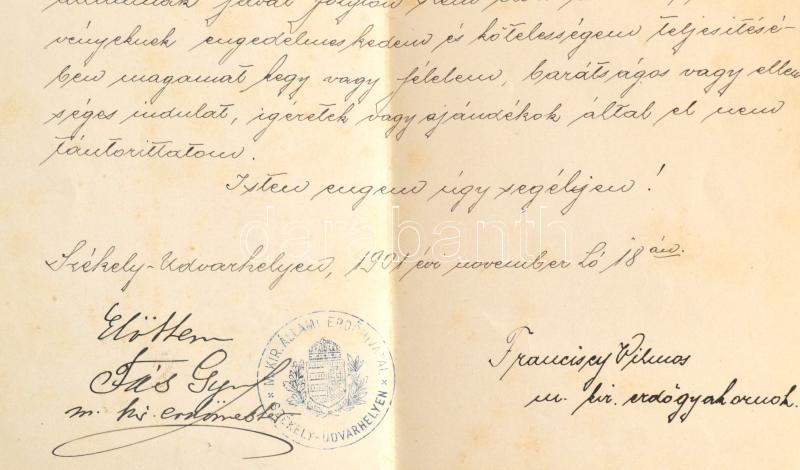 javát folytán
vényeknek engedelmeskedem és kötelességem teljesitésé-
ben magamat kegy vagy félelem, barátságos vagy ellen
séges indulat, igéretek vagy ajándékok által el nem
tántorittatom.
Isten engem úgy segéljen!
darabanth
Székely-Udvarhelyen, 1901 évi november hó 18 án.
Előttem
Fás Gyul
m. kir. erdőmester
M. KIR. ÁLLAMI ERDŐHIVATAL
* SZÉKELY-UDVARHELYEN *
Franciscy Vilmos
m. kir. erdőgyakornok.